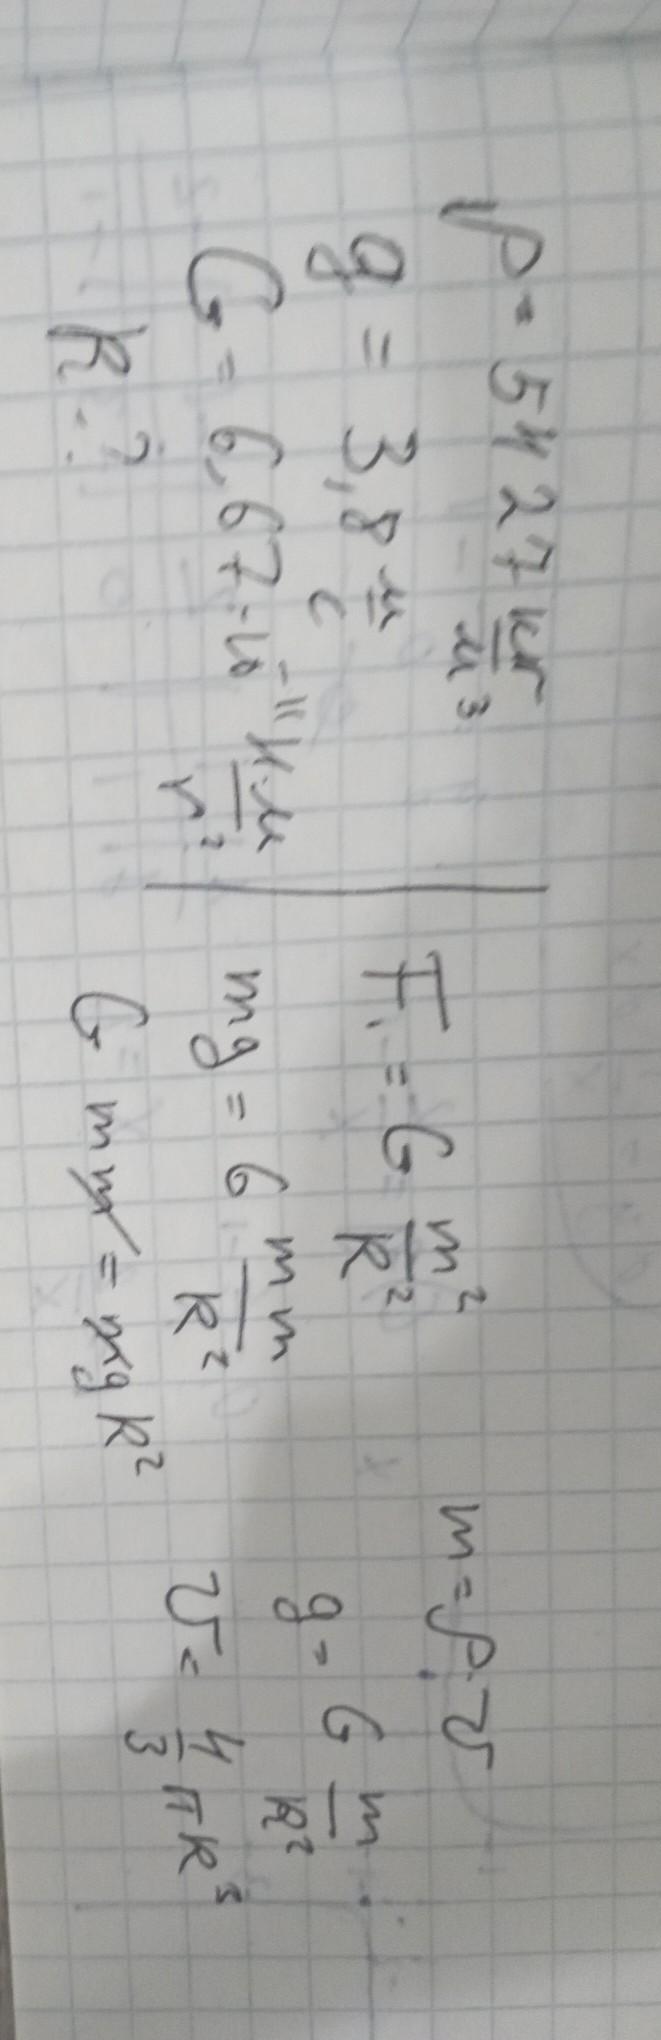 ρ = 5427 кг/м³
g = 3,8 м/с
G = 6,67·10⁻¹¹ Н·м/кг²
R - ?
F = G m²/R²
mg = G mm/R²
G mm = mgR²
m = ρ·V
g = G m/R²
V = 4/3 πR³